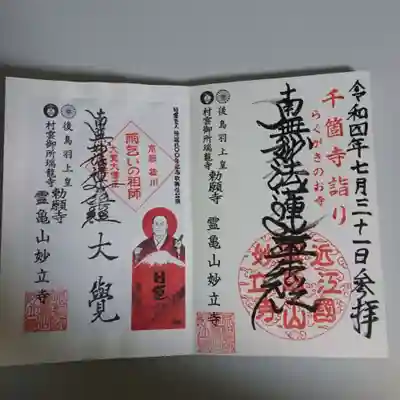 令和四年七月三十一日参拝
千箇寺詣り
らくがきのお寺
南無妙法蓮華経
近江國
妙立寺
後鳥羽上皇
勅願寺
村雲御所瑞龍寺
霊亀山妙立寺
雨乞いの祖師
大覚大僧正
京都 桂川
南無妙法蓮華経
大覺
後鳥羽上皇
勅願寺
村雲御所瑞龍寺
霊亀山妙立寺